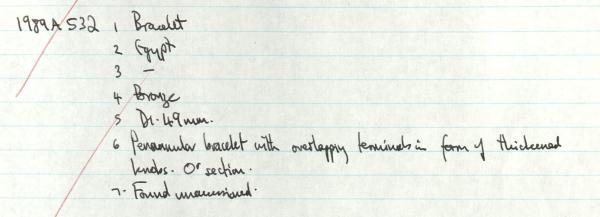 1989A532 1 Bracelet
2 Egypt
3 —
4 Bronze
5 Di. 49mm.
6 Penannular bracelet with overlapping terminals in form of thickened
knobs. O section.
7. Found unaccessioned.